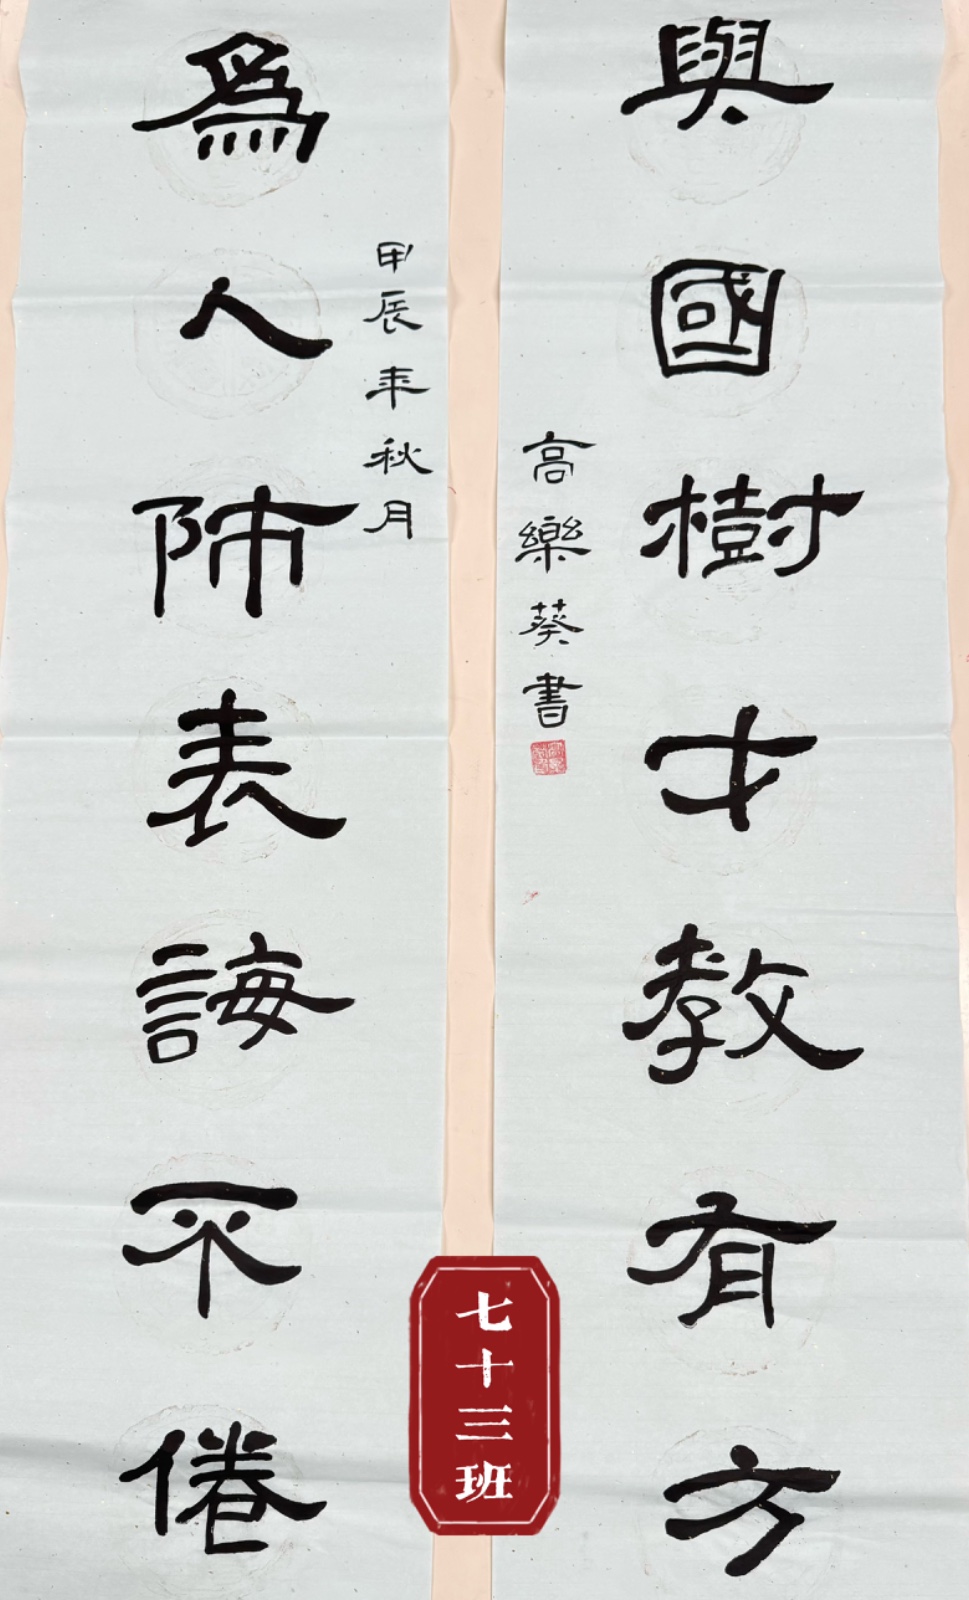 與國樹才教有方
高樂葵書
甲辰年秋月
爲人師表誨不倦
七十三班